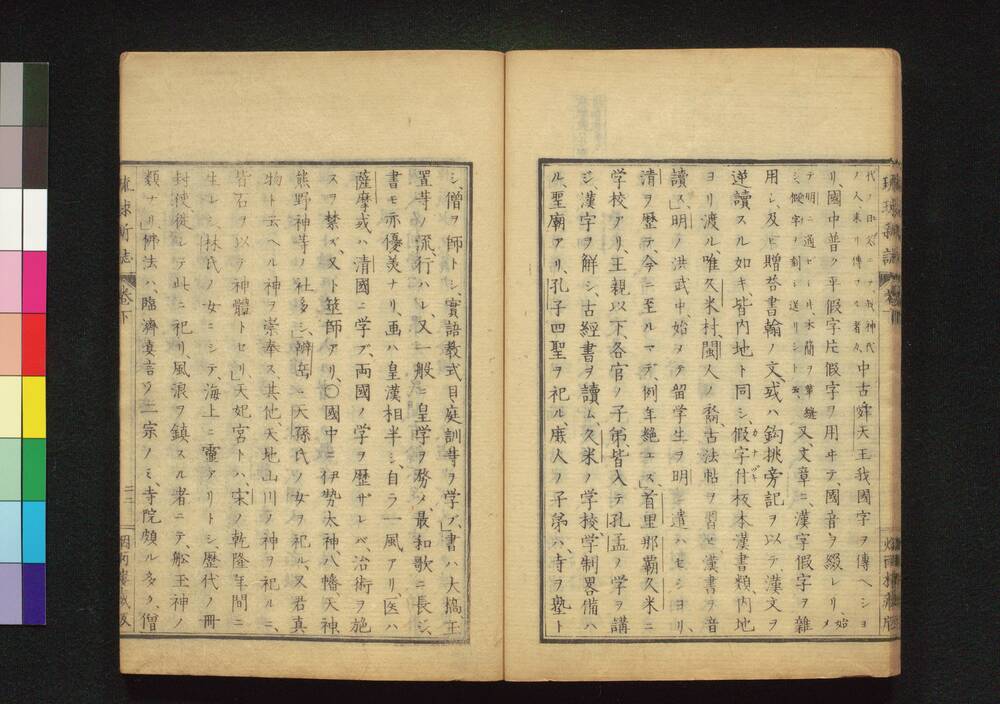 代ノ
ノ人来リ傳フ
中古舜天王我國字ヲ傳ヘシヨ
リ、國中普ク平假字片假字ヲ用ヰテ、國音ヲ綴レリ、始メ
又、文章ニ、漢字假字ヲ雜
用シ、及ビ贈答書翰ノ文或ハ鈎挑旁記ヲ以テ、漢文ヲ
逆讀スル如キ、皆内地ト同シ、假字付板本漢書類、内地
ヨリ渡ル、唯久米村、閩人ノ裔、古法帖ヲ習ヒ漢書ヲ音
讀ス、明ノ洪武中、始メテ留学生ヲ明ニ遣ハセシヨリ、
清ヲ歴テ今ニ至ルマデ、例年絶エズ、首里那覇久米ニ
学校アリ、王親以下、各官ノ子弟、皆入テ孔孟ノ学ヲ講
ジ、漢字ヲ解シ、古經書ヲ讀ム、久米ノ学校、学制畧備ハ
ル、聖廟アリ、孔子四聖ヲ祀ル、庶人ノ子弟ハ、寺ヲ塾ト
シ、僧ヲ師トシ、實語教式目、庭訓等ヲ学ブ、書ハ大橋玉
置等ノ流行ハレ、又一般ニ皇学ヲ務メ、最和歌ニ長ジ、
書モ亦優美ナリ、画ハ皇漢相半シ、自ラ一風アリ、医ハ
薩摩或ハ清國ニ学ブ、両國ノ学ヲ歴ザレバ、治術ヲ施
スヲ禁ズ、又卜筮師アリ、〇國中ニ伊勢太神、八幡、天神、
熊野神等ノ社多シ、辨岳ニ天孫氏ノ女ヲ祀ル、又君真
物ト云ヘル神ヲ崇奉ス、其他天地山川ノ神ヲ祀ル
皆石ヲ以テ神體トセリ、天妃宮トハ、宋ノ乾隆年間ニ
生レシ林氏ノ女ニシテ、海上ニ靈アリトシ、歴代ノ冊
封使從シテ此ニ祀リ、風浪ヲ鎮スル者ニテ、舩玉神ノ
類ナリ、佛法ハ、臨濟真言ノ二宗ノミ、寺院頗ル多ク、僧
琉球新誌 卷下